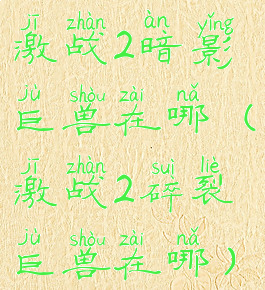 jī zhàn àn yǐng
激战2暗影
jù shòu zài nǎ
巨兽在哪（
jī zhàn suì liè
激战2碎裂
jù shòu zài nǎ
巨兽在哪）